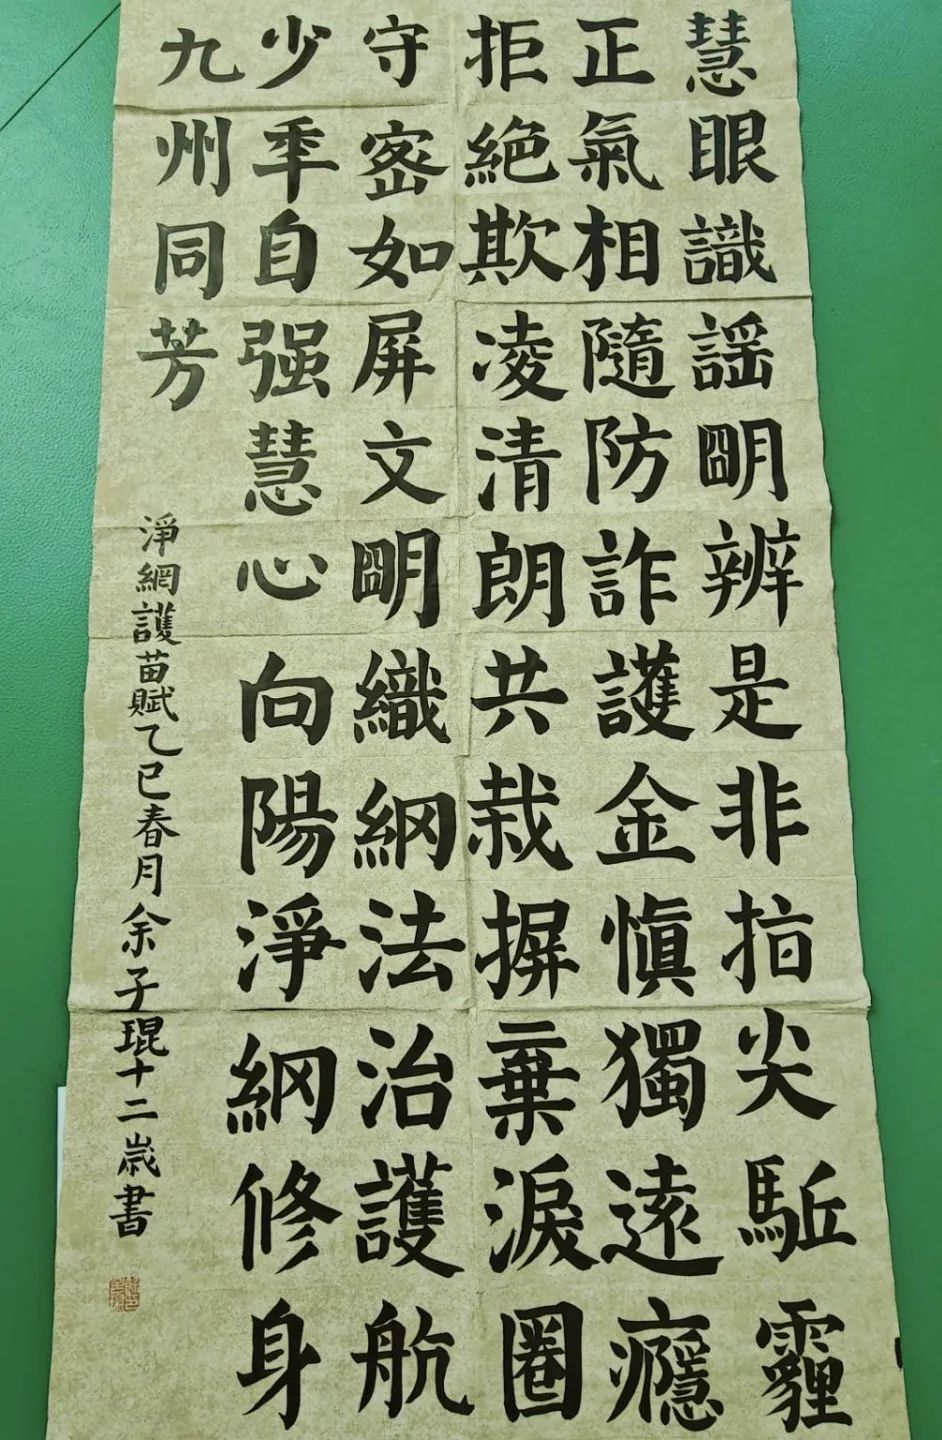 慧眼識謡朙辨是非指尖駈霾
正氣相隨防詐護金愼獨遠癮
拒絕欺凌清朗共栽摒棄淚圈
守密如屏文朙織網法治護航
少年自强慧心向陽淨網修身
九州同芳
淨網護苗賦乙巳春月余子琨十二歲書